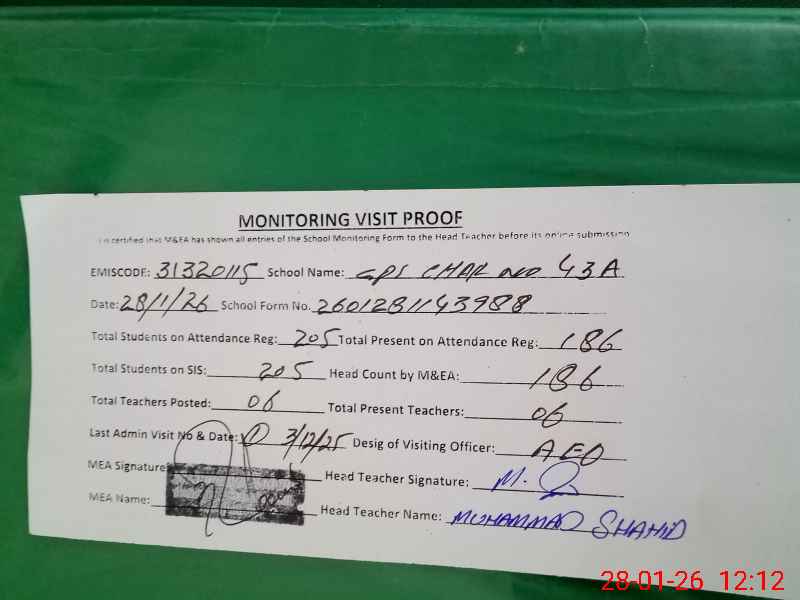 MONITORING VISIT PROOF
It is certified that M&EA has shown all entries of the School Monitoring Form to the Head Teacher before its online submission
EMISCODE: 31320115 School Name: GPS CHAK NO 43A
Date: 28/1/26 School Form No. 2601281143988
Total Students on Attendance Reg: 205 Total Present on Attendance Reg: 186
Total Students on SIS: 205 Head Count by M&EA: 186
Total Teachers Posted: 06 Total Present Teachers: 06
Last Admin Visit No & Date: 1 3/12/25 Desig of Visiting Officer: AEO
MEA Signature: Head Teacher Signature: M.
MEA Name: Head Teacher Name: MUHAMMAD SHAHID
28-01-26 12:12